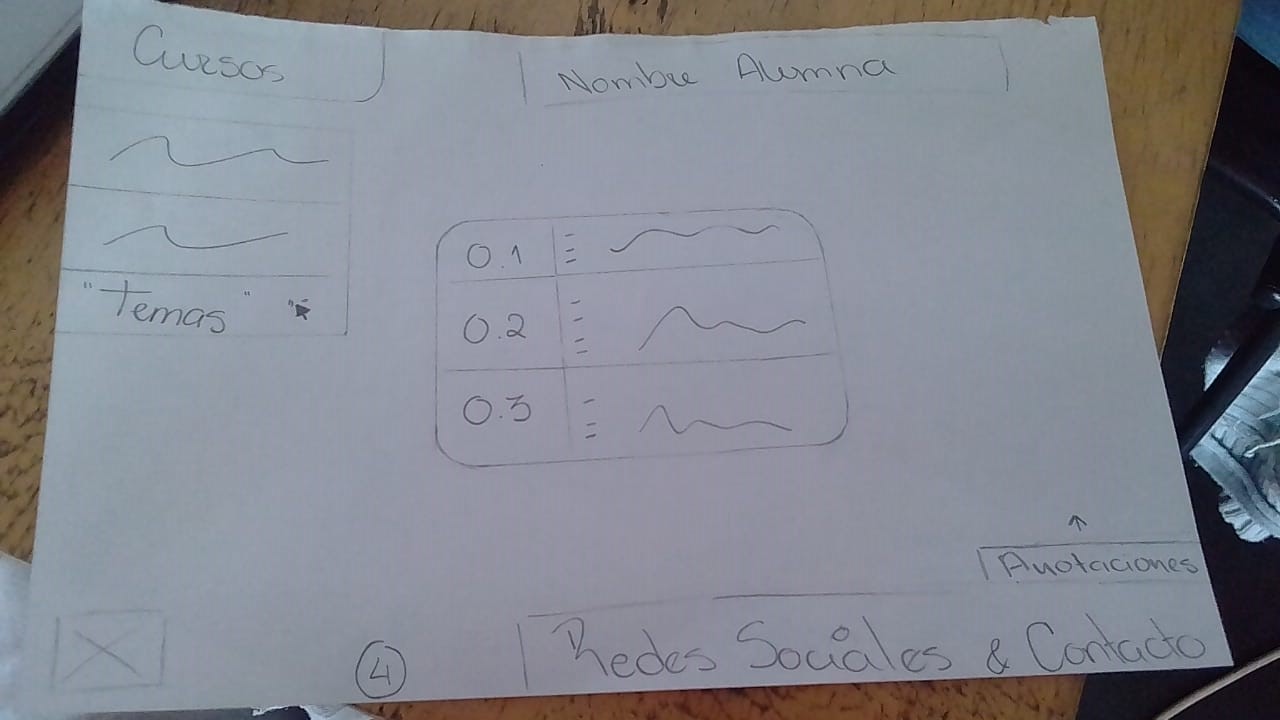 Cursos
Nombre Alumna
"Temas"
0.1
0.2
0.3
Anotaciones
4
Redes Sociales & Contacto